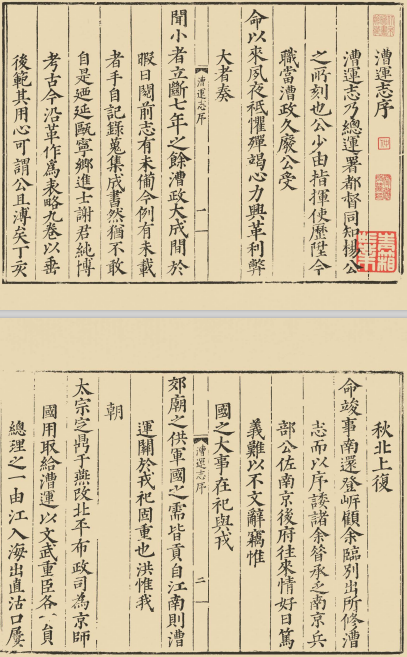 漕運志序
漕運志乃總運署都督同知楊公
之所刻也公少由指揮使歷陞今
職當漕政久廢公受
命以來夙夜祗懼殫竭心力興革利弊
大者奏
漕運志序
一
聞小者立斷七年之餘漕政大成間於
暇日閱前志有未備今例有未載
者手自記錄蒐集成書然猶不敢
自是廼延甌寧鄉進士謝君純博
考古今沿革作為表略九卷以垂
後範其用心可謂公且溥矣丁亥
秋北上復
命竣事南還登岍顧余臨別出所修漕
志而以序諉諸余昝承乏南京兵
部公佐南京後府往來情好日篤
義難以不文辭竊惟
國之大事在祀與戎
漕運志序
二
郊廟之供軍國之需皆貢自江南則漕
運關於戎祀固重也洪惟我
朝
太宗定鼎于燕改北平布政司為京師
國用取給漕運以文武重臣各一員
總理之一由江入海出直沽口屢